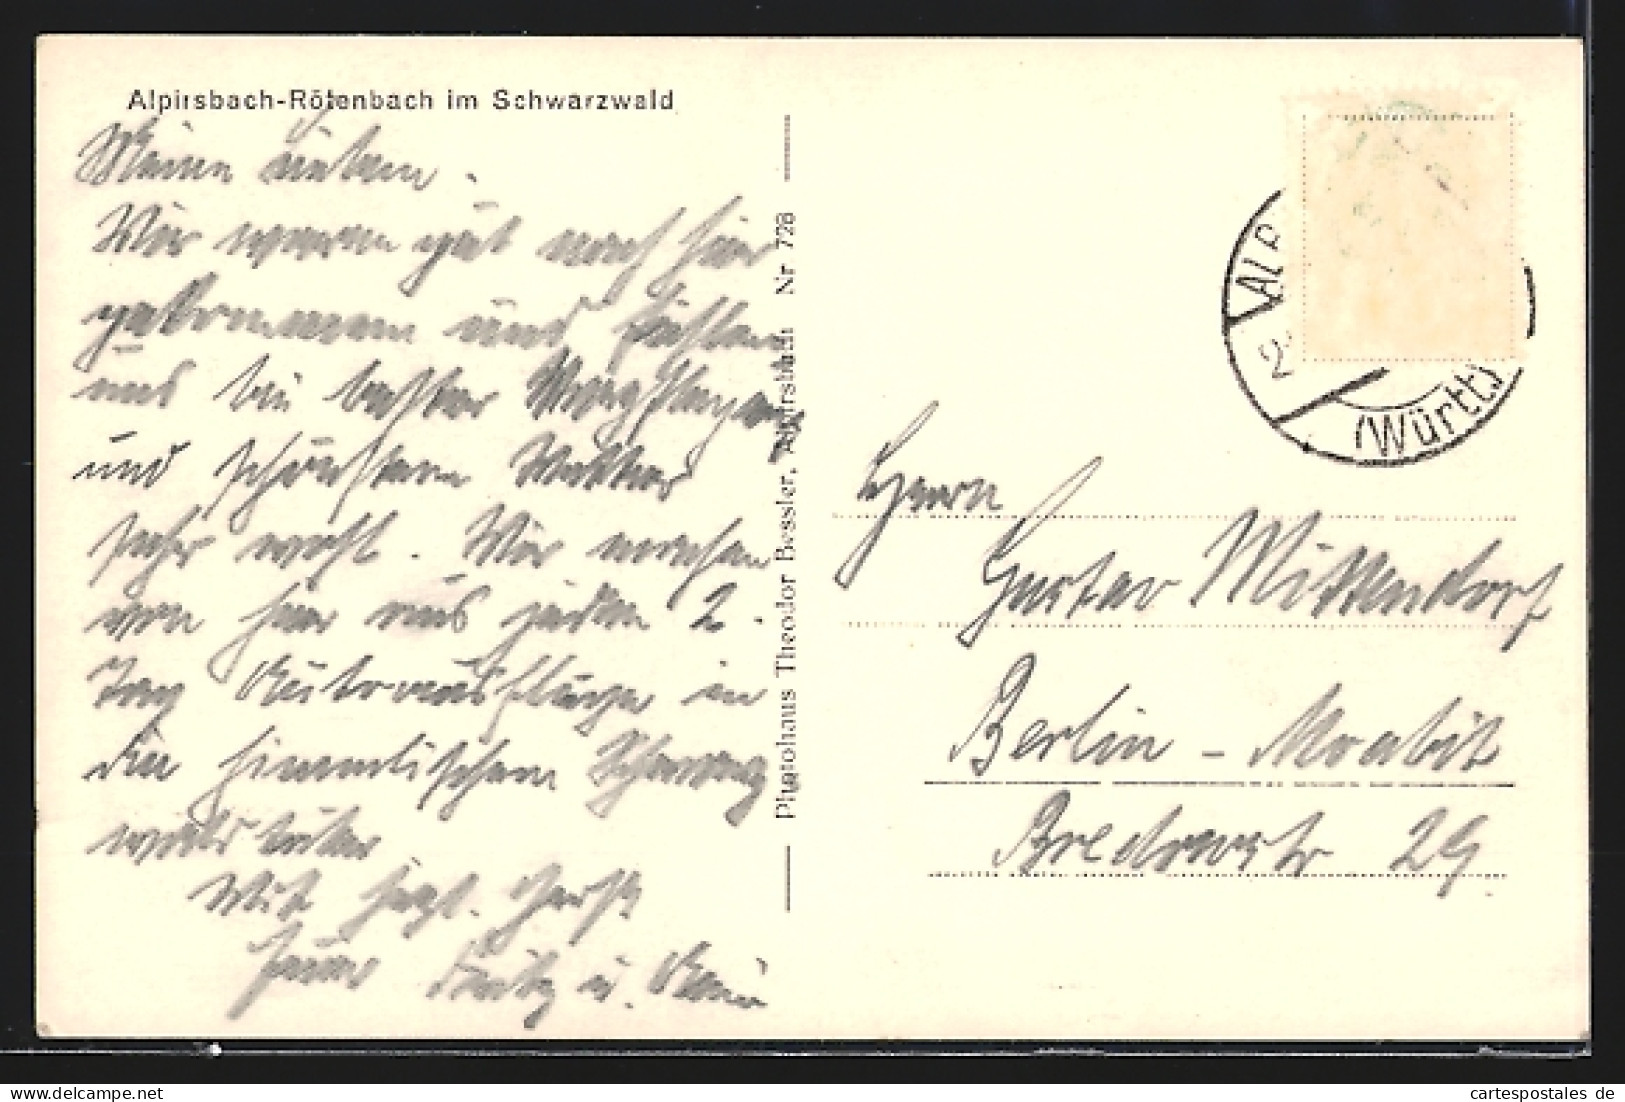 Alpirsbach-Rötenbach im Schwarzwald
Meine Lieben.
Wir waren gut nach hier
gekommen und fühlen
uns bei bester Verpflegung
und schönstem Wetter
sehr wohl. Wir machen
von hier aus jeden 2.
Tag Autoausflüge in
den himmlischen
Mit herzl.
Fritz u.
Photohaus Theodor Bessler, Alpirsbach Nr 728
ALP
2
(Württ)
Herrn
Gustav Mittendorf
Berlin - Moabit
Bredowstr 29.
cartespostales.de